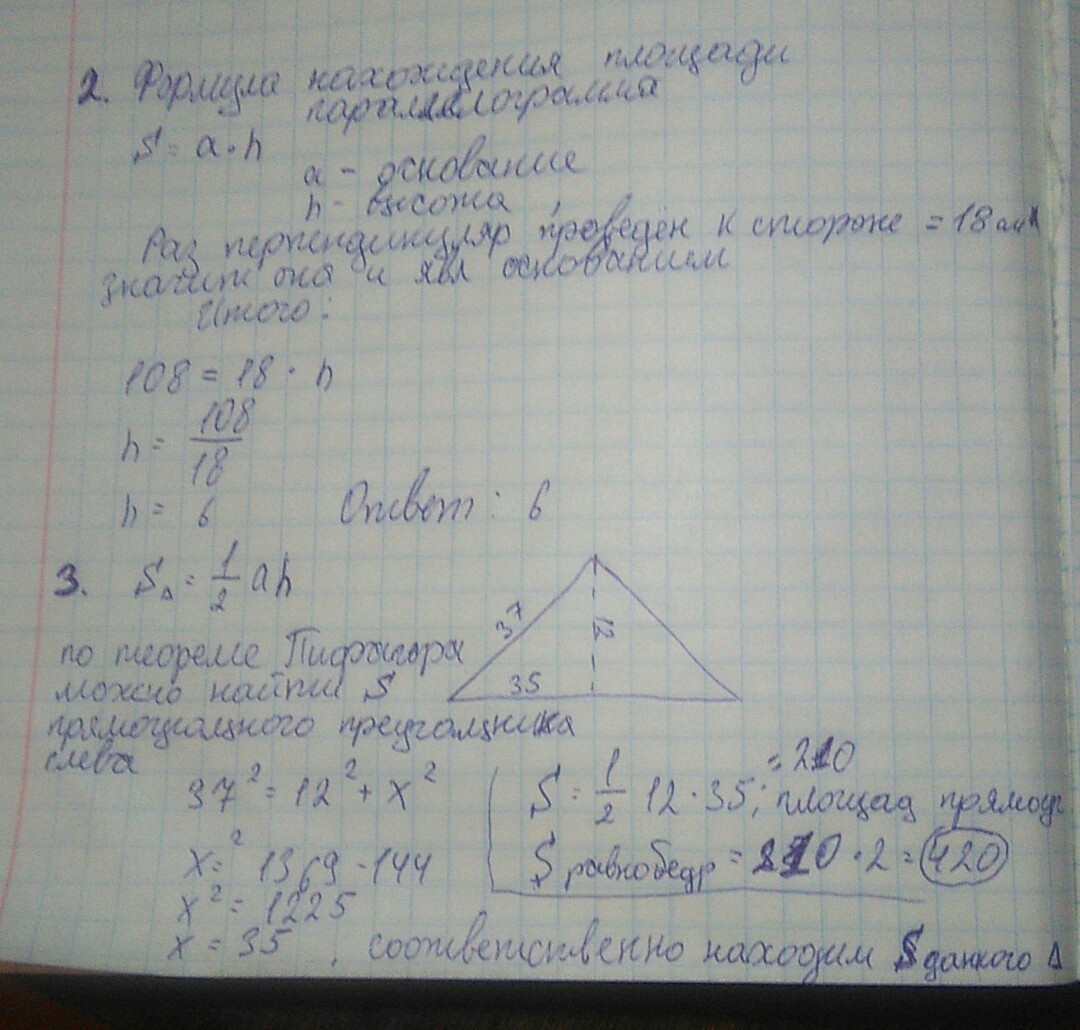 2. Формула нахождения площади
параллелограмма
S = a · h
a - основание
h - высота
Раз перпендикуляр проведён к стороне = 18 см
значит она и явл основанием
Итого:
108 = 18 · h
h = 108/18
h = 6 Ответ: 6
3. S△ = 1/2 ah
37
12
35
по теореме Пифагора
можно найти S
прямоугольного треугольника
слева
37² = 12² + x²
x² = 1369 - 144
x² = 1225
x = 35, соответственно находим S данного △
= 210
S = 1/2 12 · 35; площад прямоуг
S равнобедр = 210 · 2 = 420